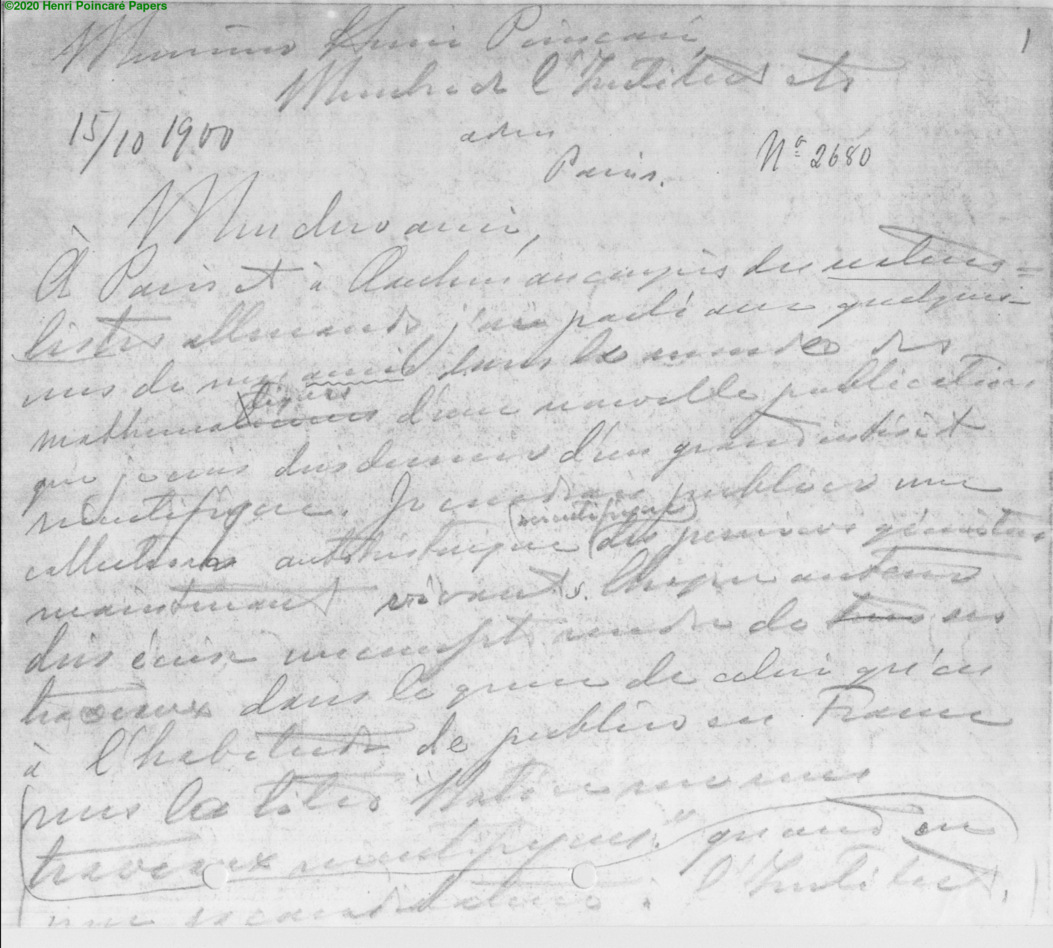 ©2020 Henri Poincaré Papers
1
Monsieur Henri Poincaré,
Membre de l'Institut etc
15/10 1900
Paris.
Nº 2680
Mon cher ami,
À Paris et à Aachen au congrès des natura=
listes allemands j'ai parlé avec quelques-
uns de mes amis dans le monde des
mathematiciens d'une nouvelle publication
que je crois d'un grand intérêt
scientifique. Je voudrais publier une
collection scientifique des premiers géomètres
maintenant vivants. Chaque auteur
dois écrire un compte rendu de tous ses
travaux dans le genre de celui qu'on
à l'habitude de publier en France
sous le titre "Notice sur mes
travaux scientifiques." quand on
l'Institut,